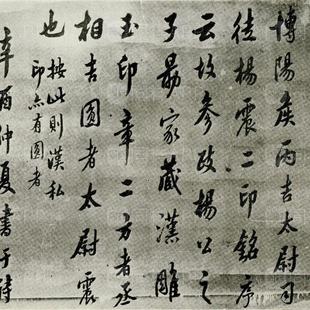 博陽侯丙吉太尉司
徒楊震二印銘序
云故參政楊公之
子勗家藏漢雕
玉印章二方者丞
相吉圓者太尉震
也 按此則漢私
印亦有圓者
辛酉仲夏書于